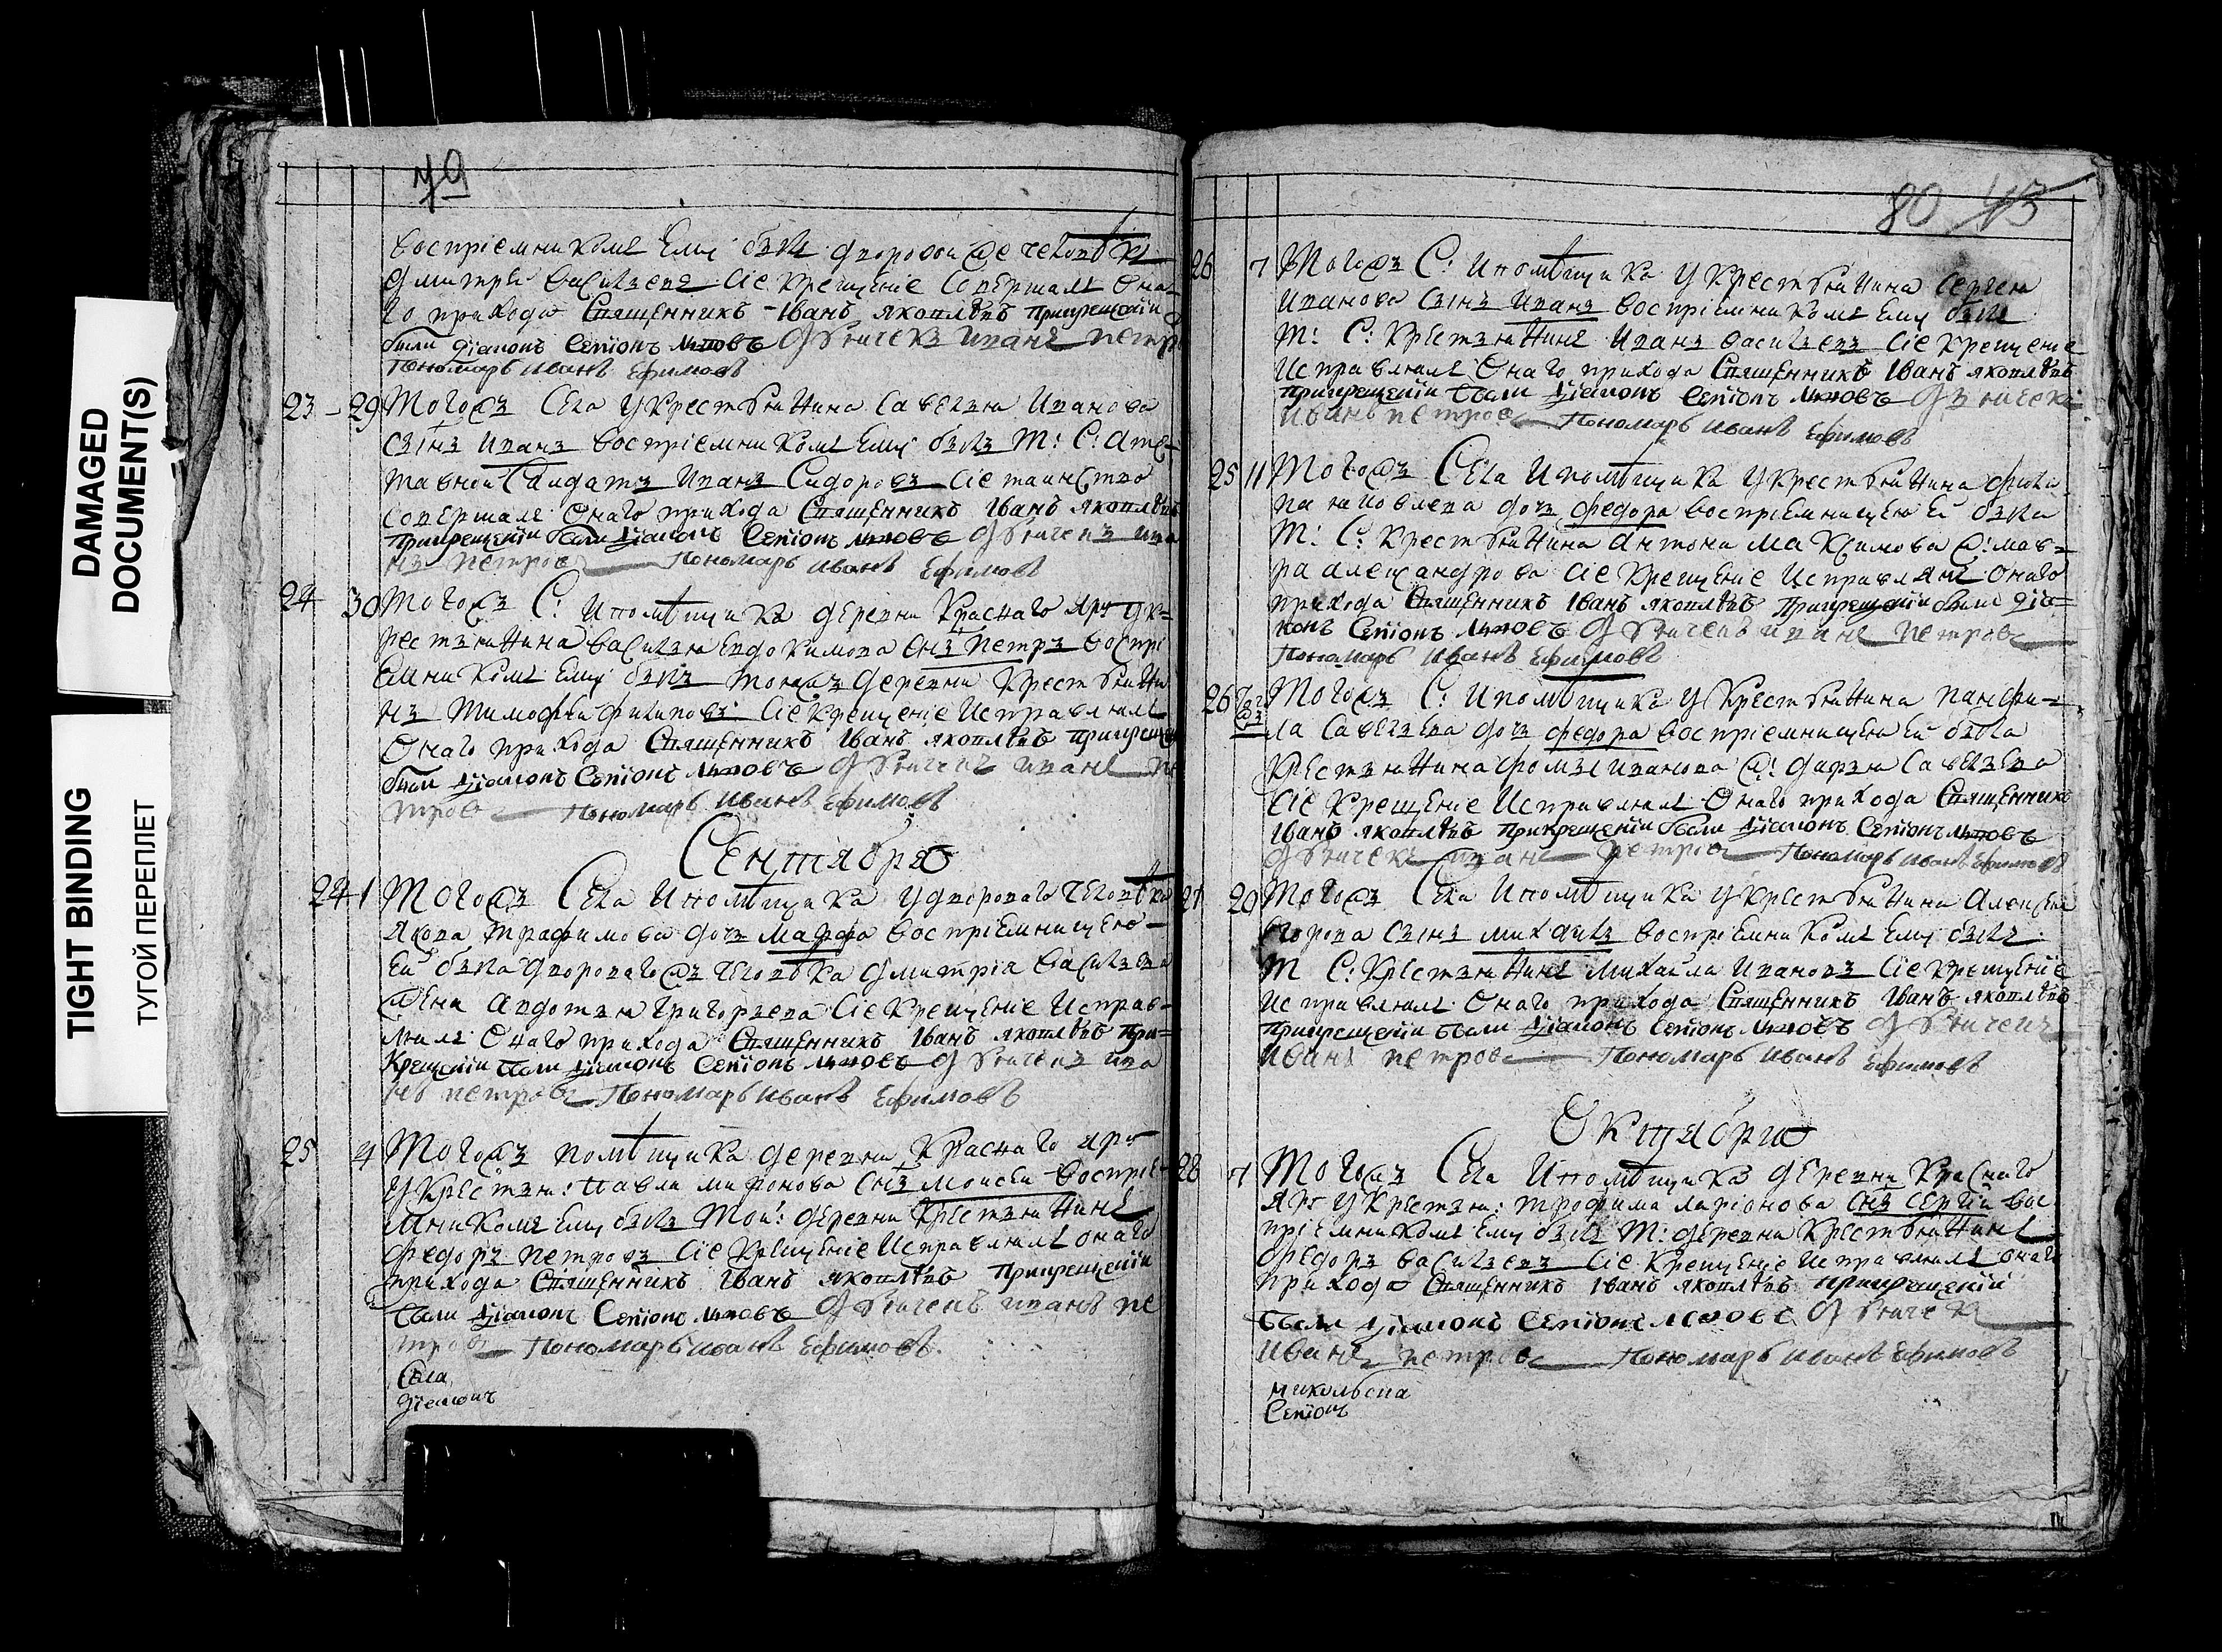 DAMAGED
DOCUMENT(S)
TIGHT BINDING
ТУГОЙ ПЕРЕПЛЕТ
79
воспріемникомъ Ему былъ дворовои же человѣкъ
дмитреи василъевъ Сіе Крещеніе Совершалъ Она
го прихода Священникъ Іванъ яковлѣвъ Прикрещеніи
были діаконъ Сепіонъ дьячекъ иванъ петр
Пономарь иванъ ефимовъ
23 - 29 Тогожъ Села у Крестьянина Савелъя Иванова
сынъ иванъ воспріемникомъ Ему былъ Т: С: Отс
тавнои Салдатъ Иванъ Сидоровъ Сіе таинство
совершалъ Онаго прихода Священникъ Іванъ яковлѣвъ
Прикрещеніи были діаконъ Сепіонъ дьячекъ ива
нъ петровъ Пономарь иванъ ефимовъ
24 30 Тогожъ С: И помѣщика деревни Краснаго яру ук=
рестъянина василъя Евдокимова снъ петръ воспрі
емникомъ Ему былъ тоежъ деревни Крестьяни
нъ Тимофѣи филиповъ Сіе Крещеніе Исправлялъ
Онаго прихода Священникъ Іванъ яковлѣвъ прикреще
были діаконъ Сепіонъ дьячекъ иванъ пе
тровъ Пономарь иванъ ефимовъ
Сентября
24 1 Тогожъ Села И помѣщика у двороваго человѣка
якова трафимова дочъ марфа воспріемницею
Еи была двороваго жъ человѣка дмитрія василъева
жена авдотъя григоръева Сіе Крещеніе Исправ=
лялъ Онаго прихода Священникъ Іванъ яковлѣвъ При=
Крещеніи были діаконъ Сепіонъ дьячекъ ива
нъ петровъ Пономарь иванъ ефимовъ
25 4 Тогожъ помѣщика деревни Краснаго яру
у Крестъян: павла миронова снъ моисеи воспріе
мникомъ Ему былъ Тои: деревни Крестъянинъ
федоръ петровъ Сіе Крещеніе Исправлялъ онаго
прихода Священникъ Іванъ яковлѣвъ Прикрещеніи
были діаконъ Сепіонъ дьячекъ иванъ пе
тровъ Пономарь иванъ ефимовъ.
Села
діаконъ
80 43
26 7 Тогожъ С: И помѣщика у Крестьянина Сергея
иванова сынъ иванъ воспріемникомъ Ему былъ
Т: С: Крестъянинъ Иванъ василъевъ Сіе Крещеніе
Исправлялъ Онаго прихода Священникъ Іванъ яковлѣвъ
прикрещеніи были діаконъ Сепіонъ дьячекъ
иванъ петровъ Пономарь иванъ ефимовъ
25 11 Тогожъ Села И помѣщика у Крестьянина
дочъ федора воспріемницею Еи была
Т: С: Крестьянина антона максимова ж: мав=
ра александрова Сіе Крещеніе Исправлялъ Онаго
прихода Священникъ Іванъ яковлѣвъ Прикрещеніи были діа=
конъ Сепіонъ дьячекъ иванъ петровъ
Пономарь иванъ ефимовъ
26 Тогожъ С: И помѣщика у Крестьянина панфи=
ла Савелъева дочъ федора воспріемницею Еи была
Крестъянина фомы иванова ж: даръя Савелъева
Сіе Крещеніе Исправлялъ Онаго прихода Священникъ
Іванъ яковлѣвъ Прикрещеніи были діаконъ Сепіонъ
дьячекъ иванъ петровъ Пономарь иванъ ефимовъ
27 20 Тогожъ Села И помѣщика у Крестьянина Алексея
Егорова сынъ михаилъ воспріемникомъ Ему былъ
Т С: Крестъянинъ Михаила Ивановъ Сіе Крещеніе
исправлялъ Онаго прихода Священникъ Іванъ яковлѣвъ
прикрещеніи были діаконъ Сепіонъ дьячекъ
иванъ петровъ Пономарь иванъ ефимовъ
Октября
28 7 Тогожъ Села И помѣщика деревни Краснаго
яру у Крестъян: трофима ларіонова снъ сергіи вос
пріемникомъ Ему былъ Т: деревни Крестьянинъ
федоръ василъевъ Сіе Крещеніе исправлялъ онаго
прихода Священникъ Іванъ яковлѣвъ прикрещеніи
были діаконъ Сепіонъ дьячекъ
иванъ петровъ Пономарь иванъ ефимовъ
никольска
Сепіонъ